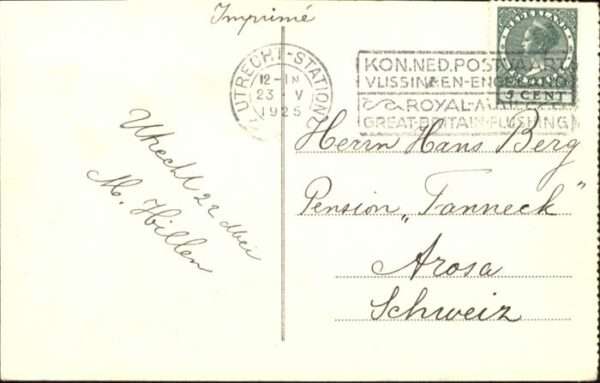 Imprimé
UTRECHT-STATION
12-1N
23 V
1925
KON.NED.POSTVAART
VLISSINGEN-ENGELAND
ROYAL MAIL
GREAT-BRITAIN-FLUSHING
NEDERLAND
5 CENT
Utrecht 22 Mei
M. Hillen
Herrn Hans Berg
Pension „Tanneck"
Arosa
Schweiz